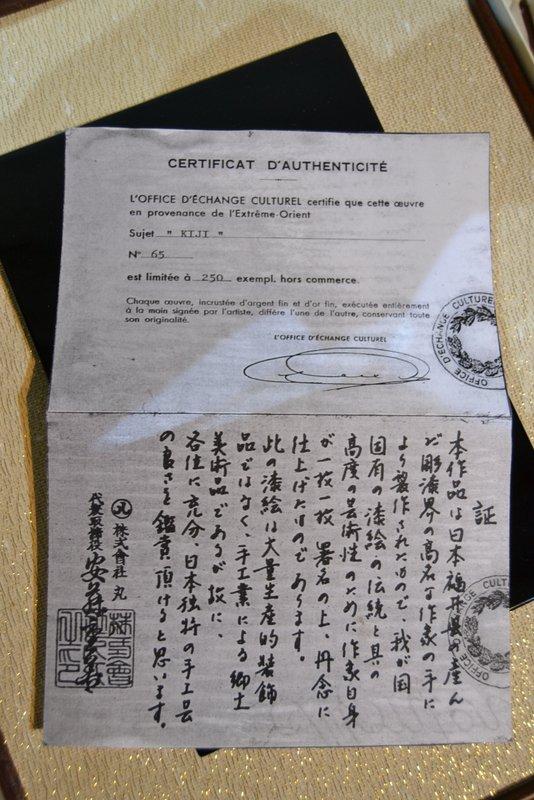 CERTIFICAT D'AUTHENTICITÉ
L'OFFICE D'ÉCHANGE CULTUREL certifie que cette œuvre
en provenance de l'Extrême-Orient
Sujet " KIJI "
N° 65
est limitée à 250 exempl. hors commerce.
Chaque œuvre, incrustée d'argent fin et d'or fin, exécutée entièrement
à la main signée par l'artiste, diffère l'une de l'autre, conservant toute
son originalité.
L'OFFICE D'ÉCHANGE CULTUREL
OFFICE D'ÉCHANGE CULTUREL
証
本作品は日本福井県の産ん
だ彫漆界の高名な作家の手に
より製作されたもので、我が国
固有の漆絵の伝統と其の
高度の芸術性のために作家自身
が一枚一枚署名の上、丹念に
仕上げたものであります。
此の漆絵は大量生産的装飾
品ではなく、手工業による郷土
美術品であるが故に、
各位に充分、日本独特の手工芸
の良さを鑑賞頂けると思います。
株式會社 丸
代表取締役